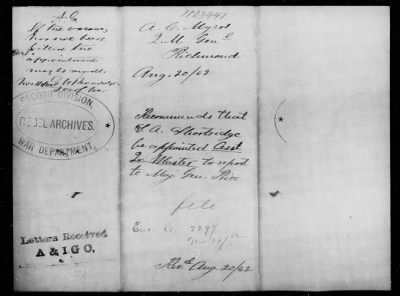 A. G.
If the vacancy
has not been
filled the
appointment
may be made.
RECORD DIVISION.
REBEL ARCHIVES.
WAR DEPARTMENT.
Letters Received
A & I G O.
A. C. Myers
Q. M. Genl
Richmond
Aug. 20/62
Recommends that
A. Shortridge
be appointed Asst
Qr Master to report
to Maj Gen. Price
file
Recd Aug 20/62